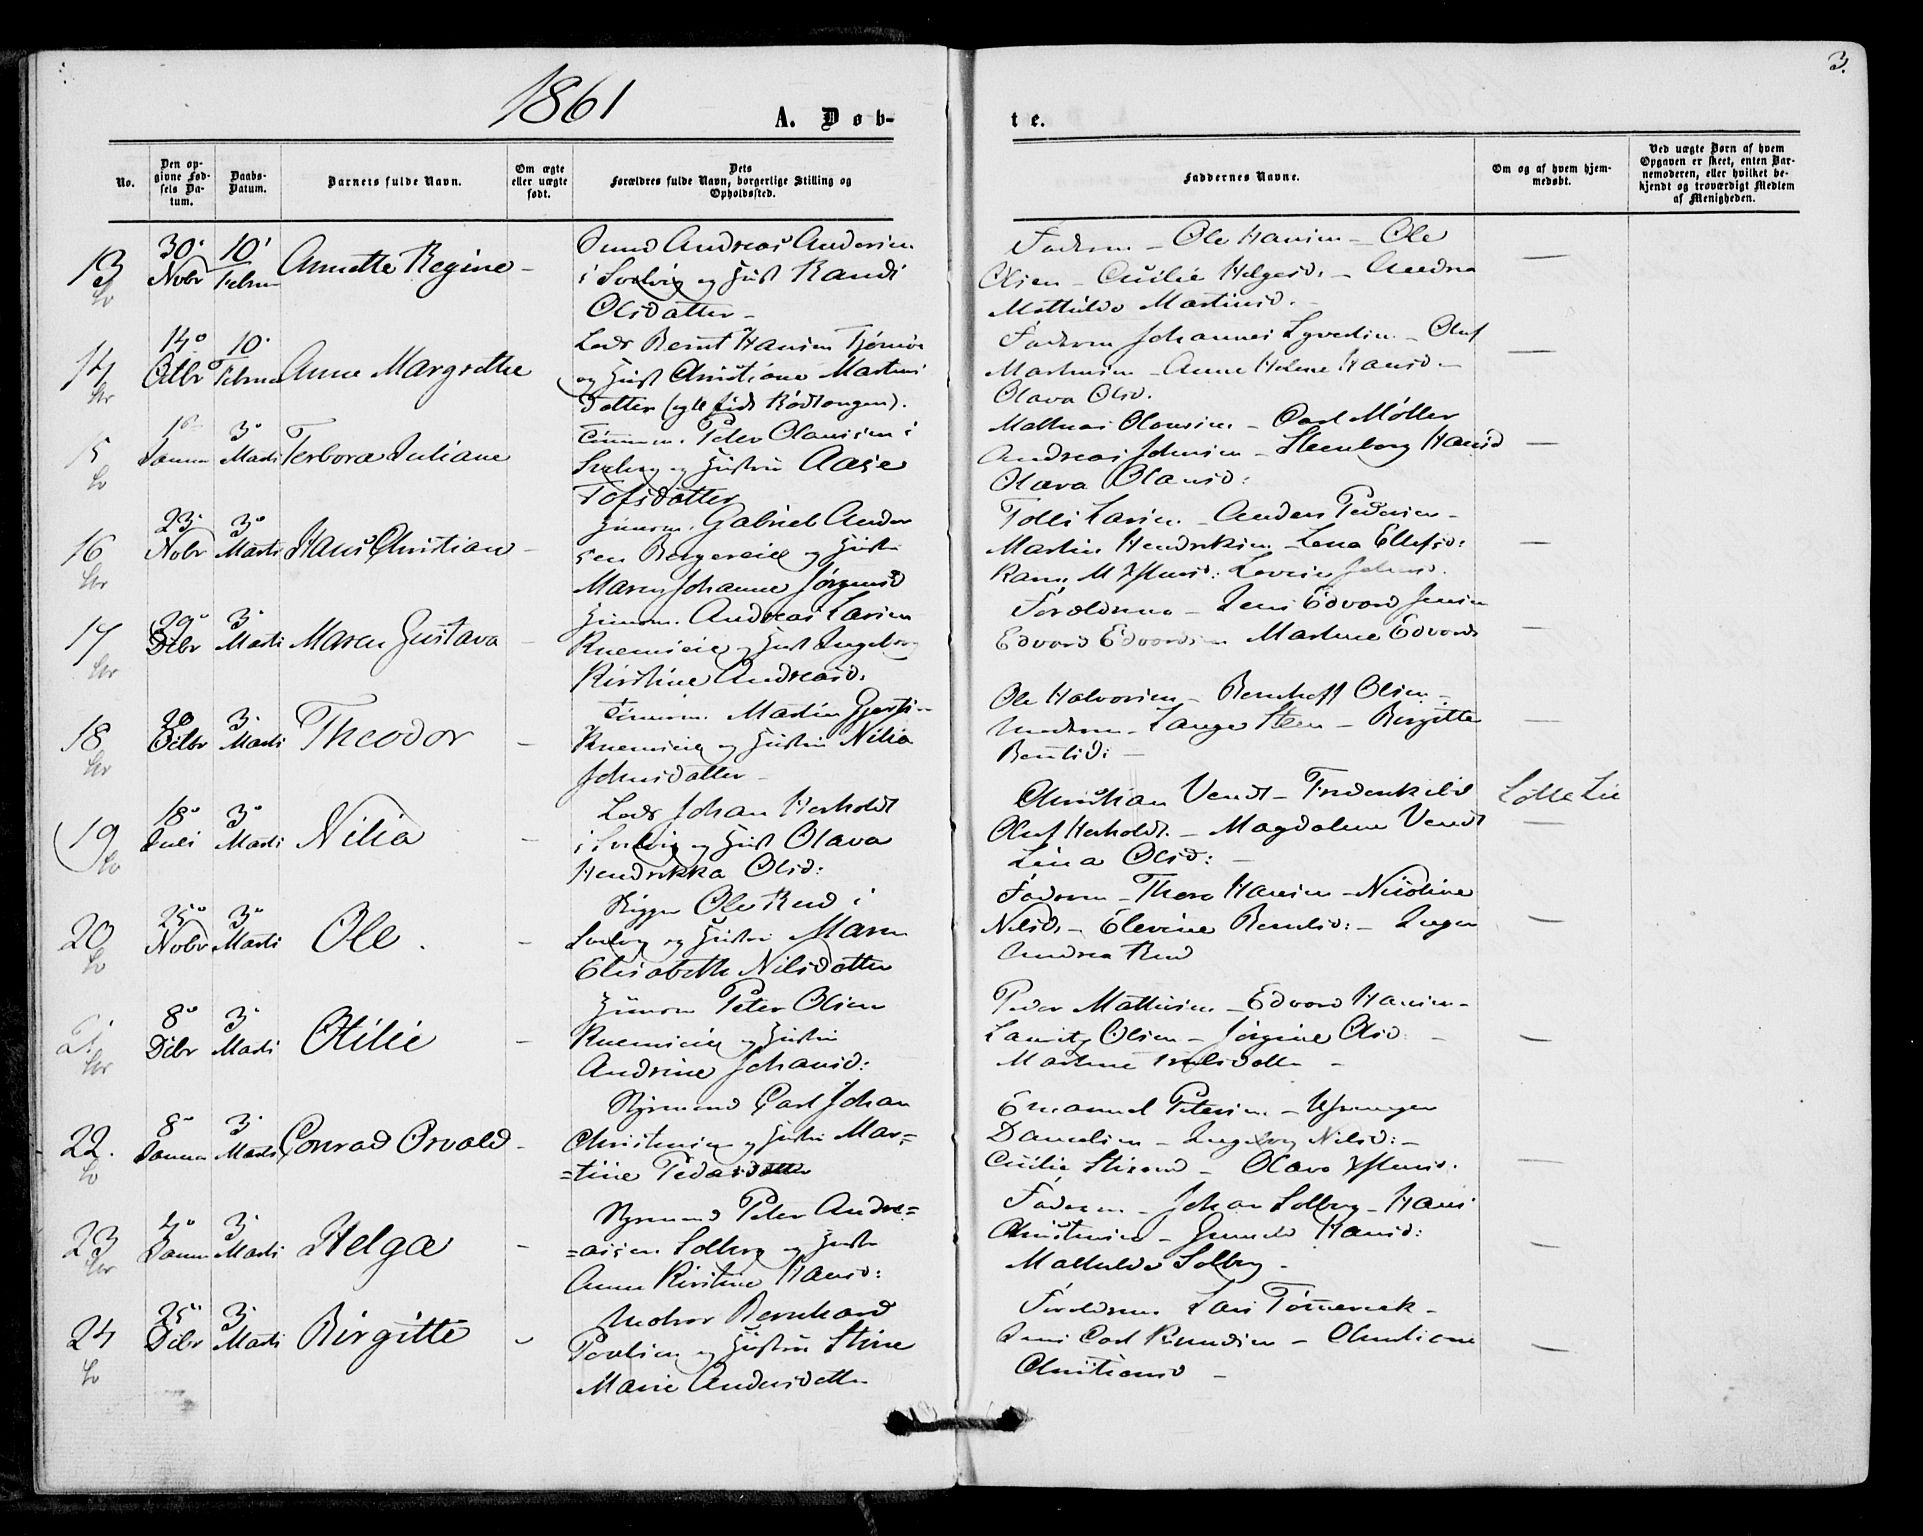 1861
3.
A. Døb-
te.
No.
Den opgivne Fødsels Datum.
Daabs-Datum.
Barnets fulde Navn.
Om ægte eller uægte født.
Dets Forældres fulde Navn, borgerlige Stilling og Opholdssted.
Faddernes Navne.
Om og af hvem hjemmedøbt.
Ved uægte Børn af hvem Opgaven er skeet, enten Barnemoderen, eller hvilket bekjendt og troværdigt Medlem af Menigheden.
13 30' Nobr 10' Februar Annette Regine -
Andreas Andersen
i Svelvig og Hust Randi
Olsdatter -
Faderen - Ole Hansen - Ole
Olsen - Cecilie Helgesd. - Andrea
Mathilde Martinsd. -
14 14° Octbr 10' Februar Anne Margrethe
Lods Bernt Hansen
og Hust Christiane Martins
datter (Rödtangen).
Faderen Johannes Syvertsen - Oluf
Martinsen - Anne Helene Hansd. -
Olava Olsd.
15 Januar 3° Marts Terbora Juliane
Tømmerm. Peter Olaussen i
Svelvig og Hustru Aase
Tofsdatter
Mathias Olaussen - Carl Möller
Andreas Johnsen - Steenborg Hansd
Olava Olausd:
16 23' Nobr 3° Marts Hans Christian -
Gabriel Ander
sen Bergereie og Hustru
Maren Johanne Jörgensd
Tolli Larsen - Anders Pedersen -
Martin Hendriksen - Lena Ellefsd:
17 29° Debr 3° Marts Maren Gustava -
Andreas Larsen
og Hust Ingeborg
Kirstine Andreasd.
Forældrene - Jens Edvard Jensen
Edvard Edvardsen Martine Edvards
18 Octbr 3' Marts Theodor -
Tømmerm. Martin
og Hustru Nilia
Johnsdatter -
Ole Halvorsen - Bernhoff Olsen -
Moderen - Steen - Birgitte
Berntsd: -
19 18° Juli 3° Marts Nilia -
Lods Johan Herholdt
i Svelvig og Hust Olava
Hendrikka Olsd:
Christian Vendt - Frederik
Oluf Herholdt. - Magdalene Vendt
Lina Olsd: -
Lie
20 25° Nobr 3° Marts Ole. -
Rigger Ole Rud i
Svelvig og Hustru Maren
Elisabeth Nilsdatter
Faderen - Thore Hansen - Nicoline
Nilsd. - Elevine Berntsd: - Inger
Andrea Rud
21. 8° Debr 3' Marts Otilie -
Peter Olsen
og Hustru
Andrine Johansd:
Peder Mathisen - Edvard Hansen -
Lauritz Olsen - Jörgine Olsd: -
Martine
22. 8° Januar 3' Marts Conrad Osvald -
Styrmand Carl Johan
Christensen og Hustru Mar-
=tine Pedersdatter
Emanuel Petersen -
Danielsen - Ingeborg Nilsd: -
Cecilie - Olava
23 4° Januar 3' Marts Helga -
Styrmand Peter Andre=
=assen Solberg og Hustru
Anne Kirstine Hansd:
Faderen - Johan Solberg - Hans
Christensen - Hansd:
Mathilde Solberg -
24 25° Debr 3' Marts Birgitte -
Bernhard
Povelsen og Hustru Stine
Marie Andersdatter
Forældrene Lars
Jens Carl Knudsen - Christiane
Christiansd -